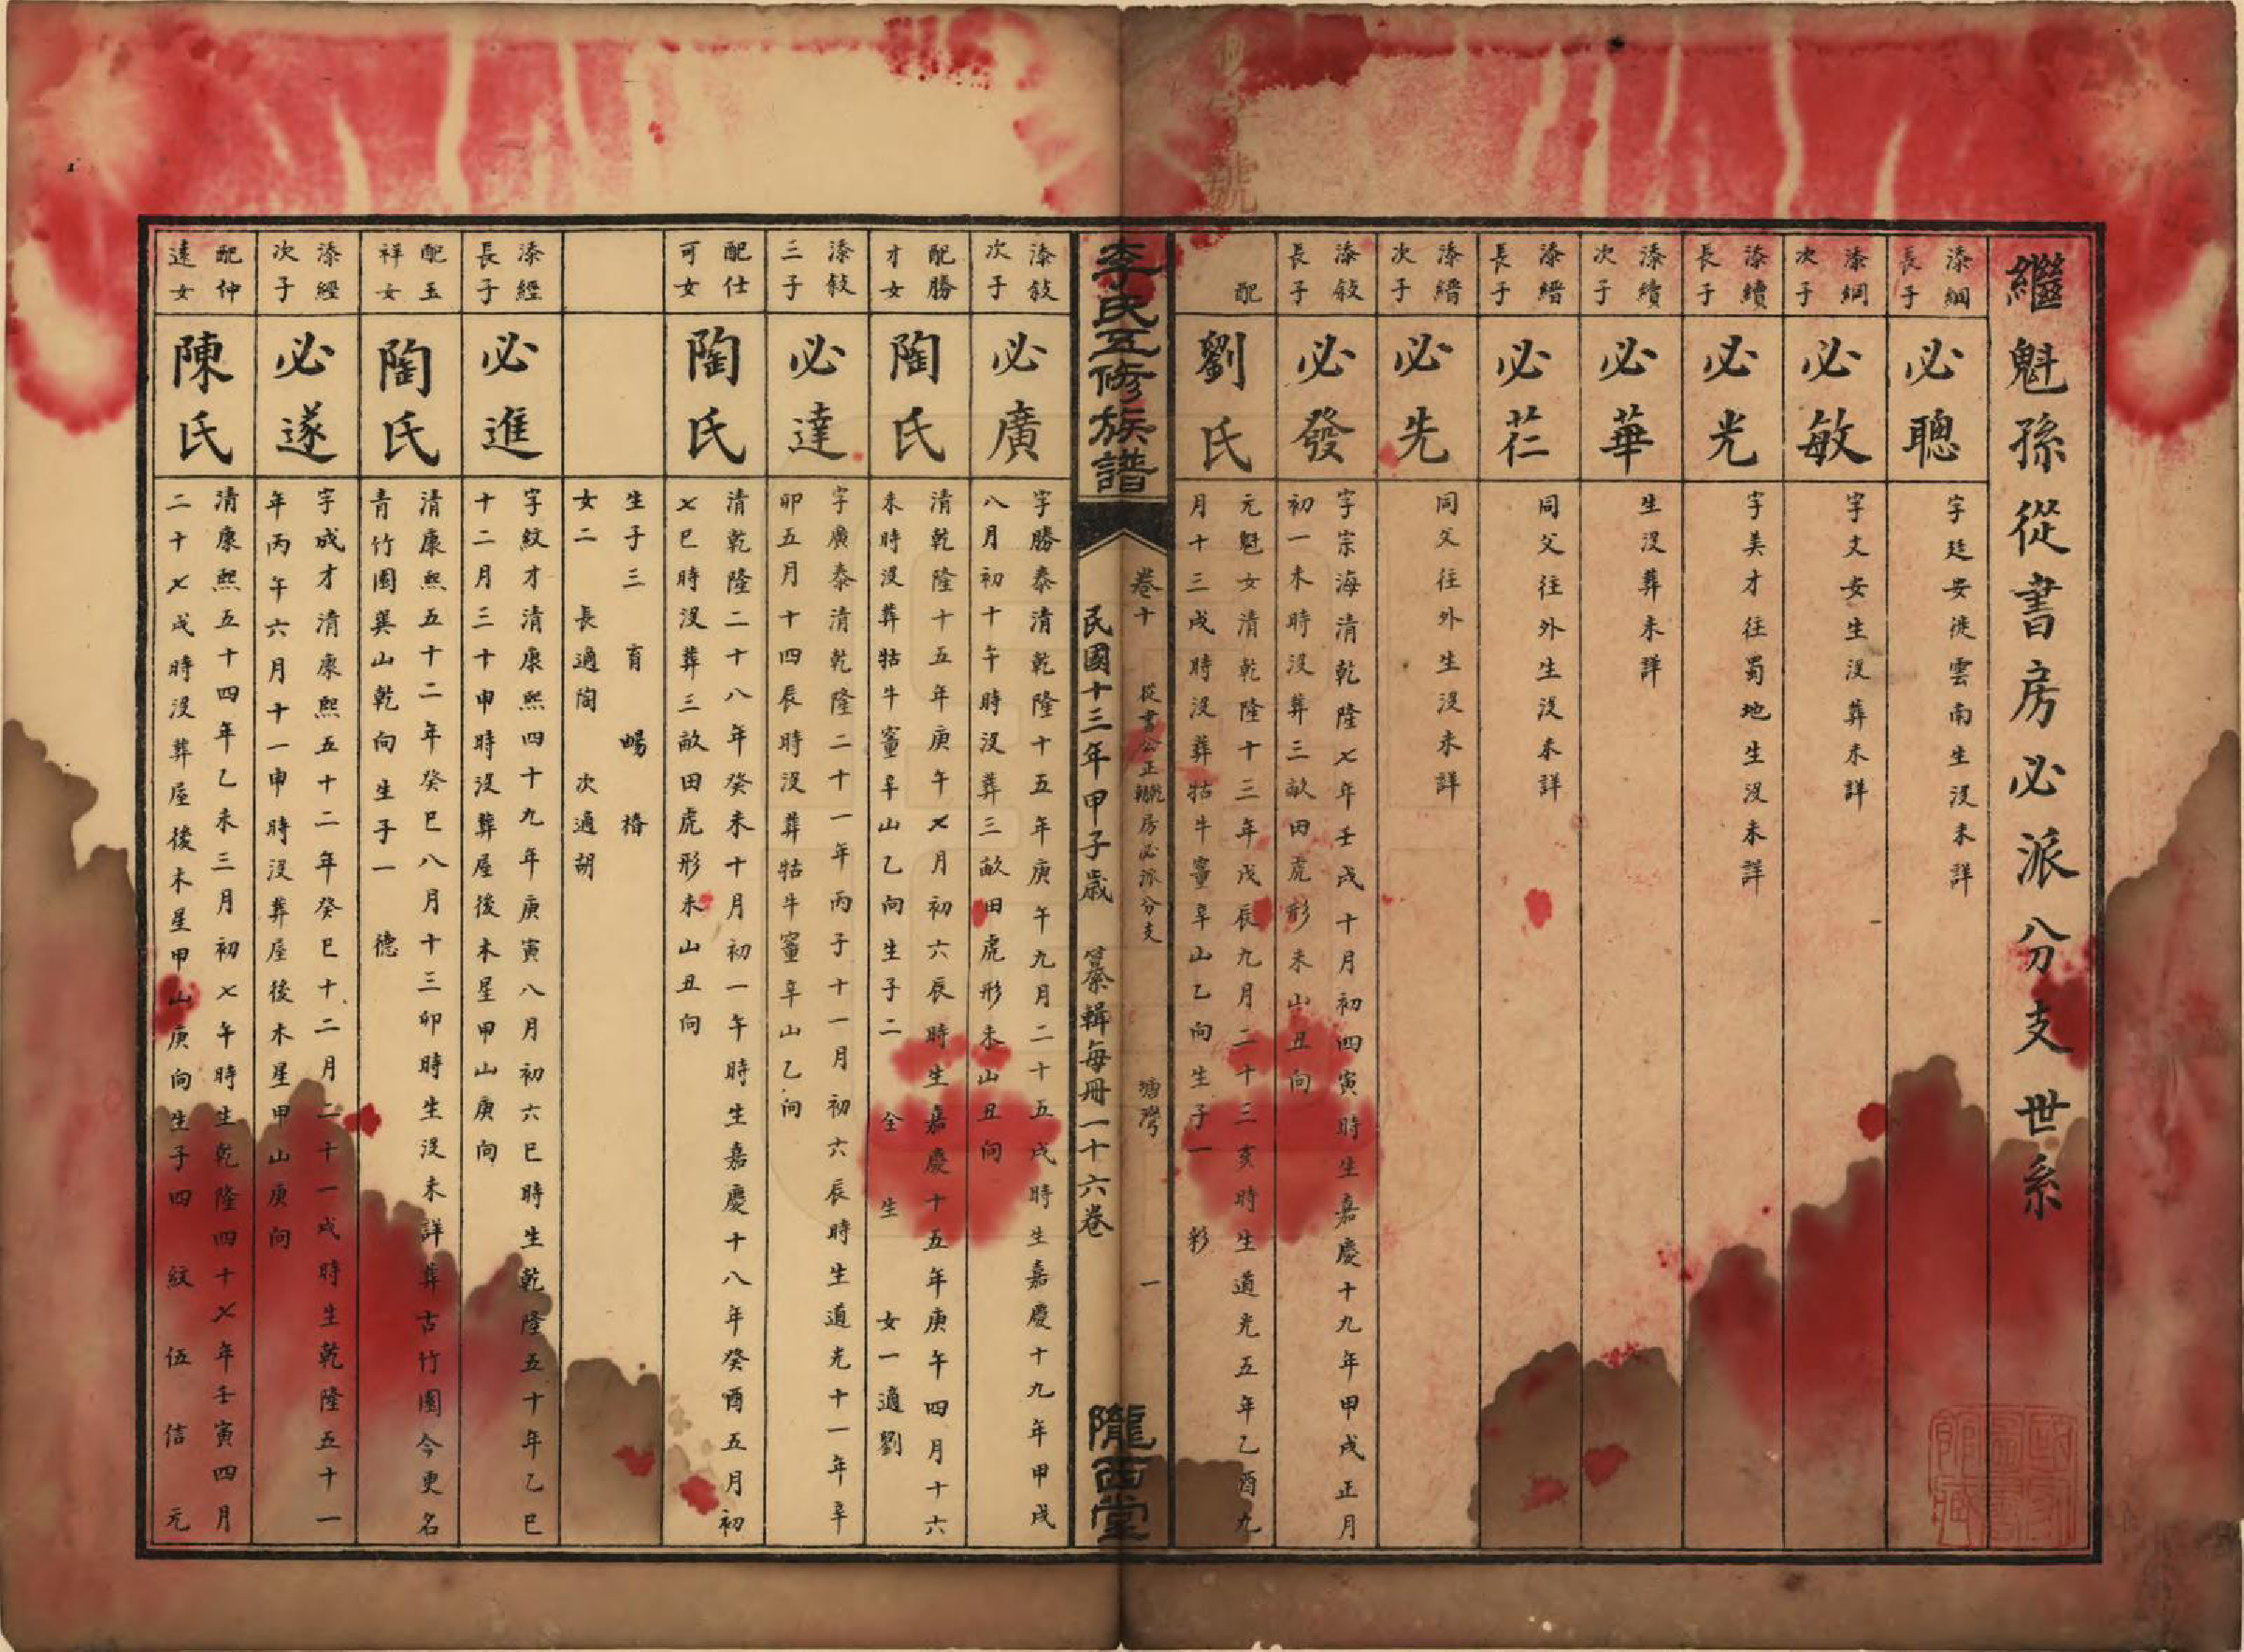 繼魁孫從書房必派分支世系
添綱
長子
必聰
字廷安徙雲南生沒未詳
添綱
次子
必敏
字文安生沒葬未詳
添續
長子
必光
字美才往蜀地生沒未詳
添續
次子
必華
生沒葬未詳
添縉
長子
必荘
同父往外生沒未詳
添縉
次子
必先
同父往外生沒未詳
添敍
長子
必發
字宗海清乾隆七年壬戌十月初四寅時生嘉慶十九年甲戌正月
初一未時沒葬三畝田虎形未山丑向
配
劉氏
元魁女清乾隆十三年戊辰九月二十三亥時生道光五年乙酉九
月十三戌時沒葬牯牛寠辛山乙向生子一 彩
李氏五修族譜
卷十 從書公正聰房必派分支 塘灣 一
民國十三年甲子歲 纂輯每冊一十六卷
隴西堂
添敍
次子
必廣
字勝泰清乾隆十五年庚午九月二十五戌時生嘉慶十九年甲戌
八月初十午時沒葬三畝田虎形未山丑向
配勝
才女
陶氏
清乾隆十五年庚午七月初六辰時生嘉慶十五年庚午四月十六
未時沒葬牯牛寠辛山乙向生子二 全 生 女一適劉
添敍
三子
必達
字廣泰清乾隆二十一年丙子十一月初六辰時生道光十一年辛
卯五月十四辰時沒葬牯牛寠辛山乙向
配仕
可女
陶氏
清乾隆二十八年癸未十月初一午時生嘉慶十八年癸酉五月初
七巳時沒葬三畝田虎形未山丑向
生子三 育 暢 椿
女二 長適陶 次適胡
添經
長子
必進
字紋才清康熙四十九年庚寅八月初六巳時生乾隆五十年乙巳
十二月三十申時沒葬屋後木星甲山庚向
配玉
祥女
陶氏
清康熙五十二年癸巳八月十三卯時生沒未詳葬古竹園今更名
青竹園巽山乾向生子一 德
添經
次子
必遂
字成才清康熙五十二年癸巳十二月二十一戌時生乾隆五十一
年丙午六月十一申時沒葬屋後木星甲山庚向
配仲
遠女
陳氏
清康熙五十四年乙未三月初七午時生乾隆四十七年壬寅四月
二十七戌時沒葬屋後木星甲山庚向生子四 紋 伍 信 元